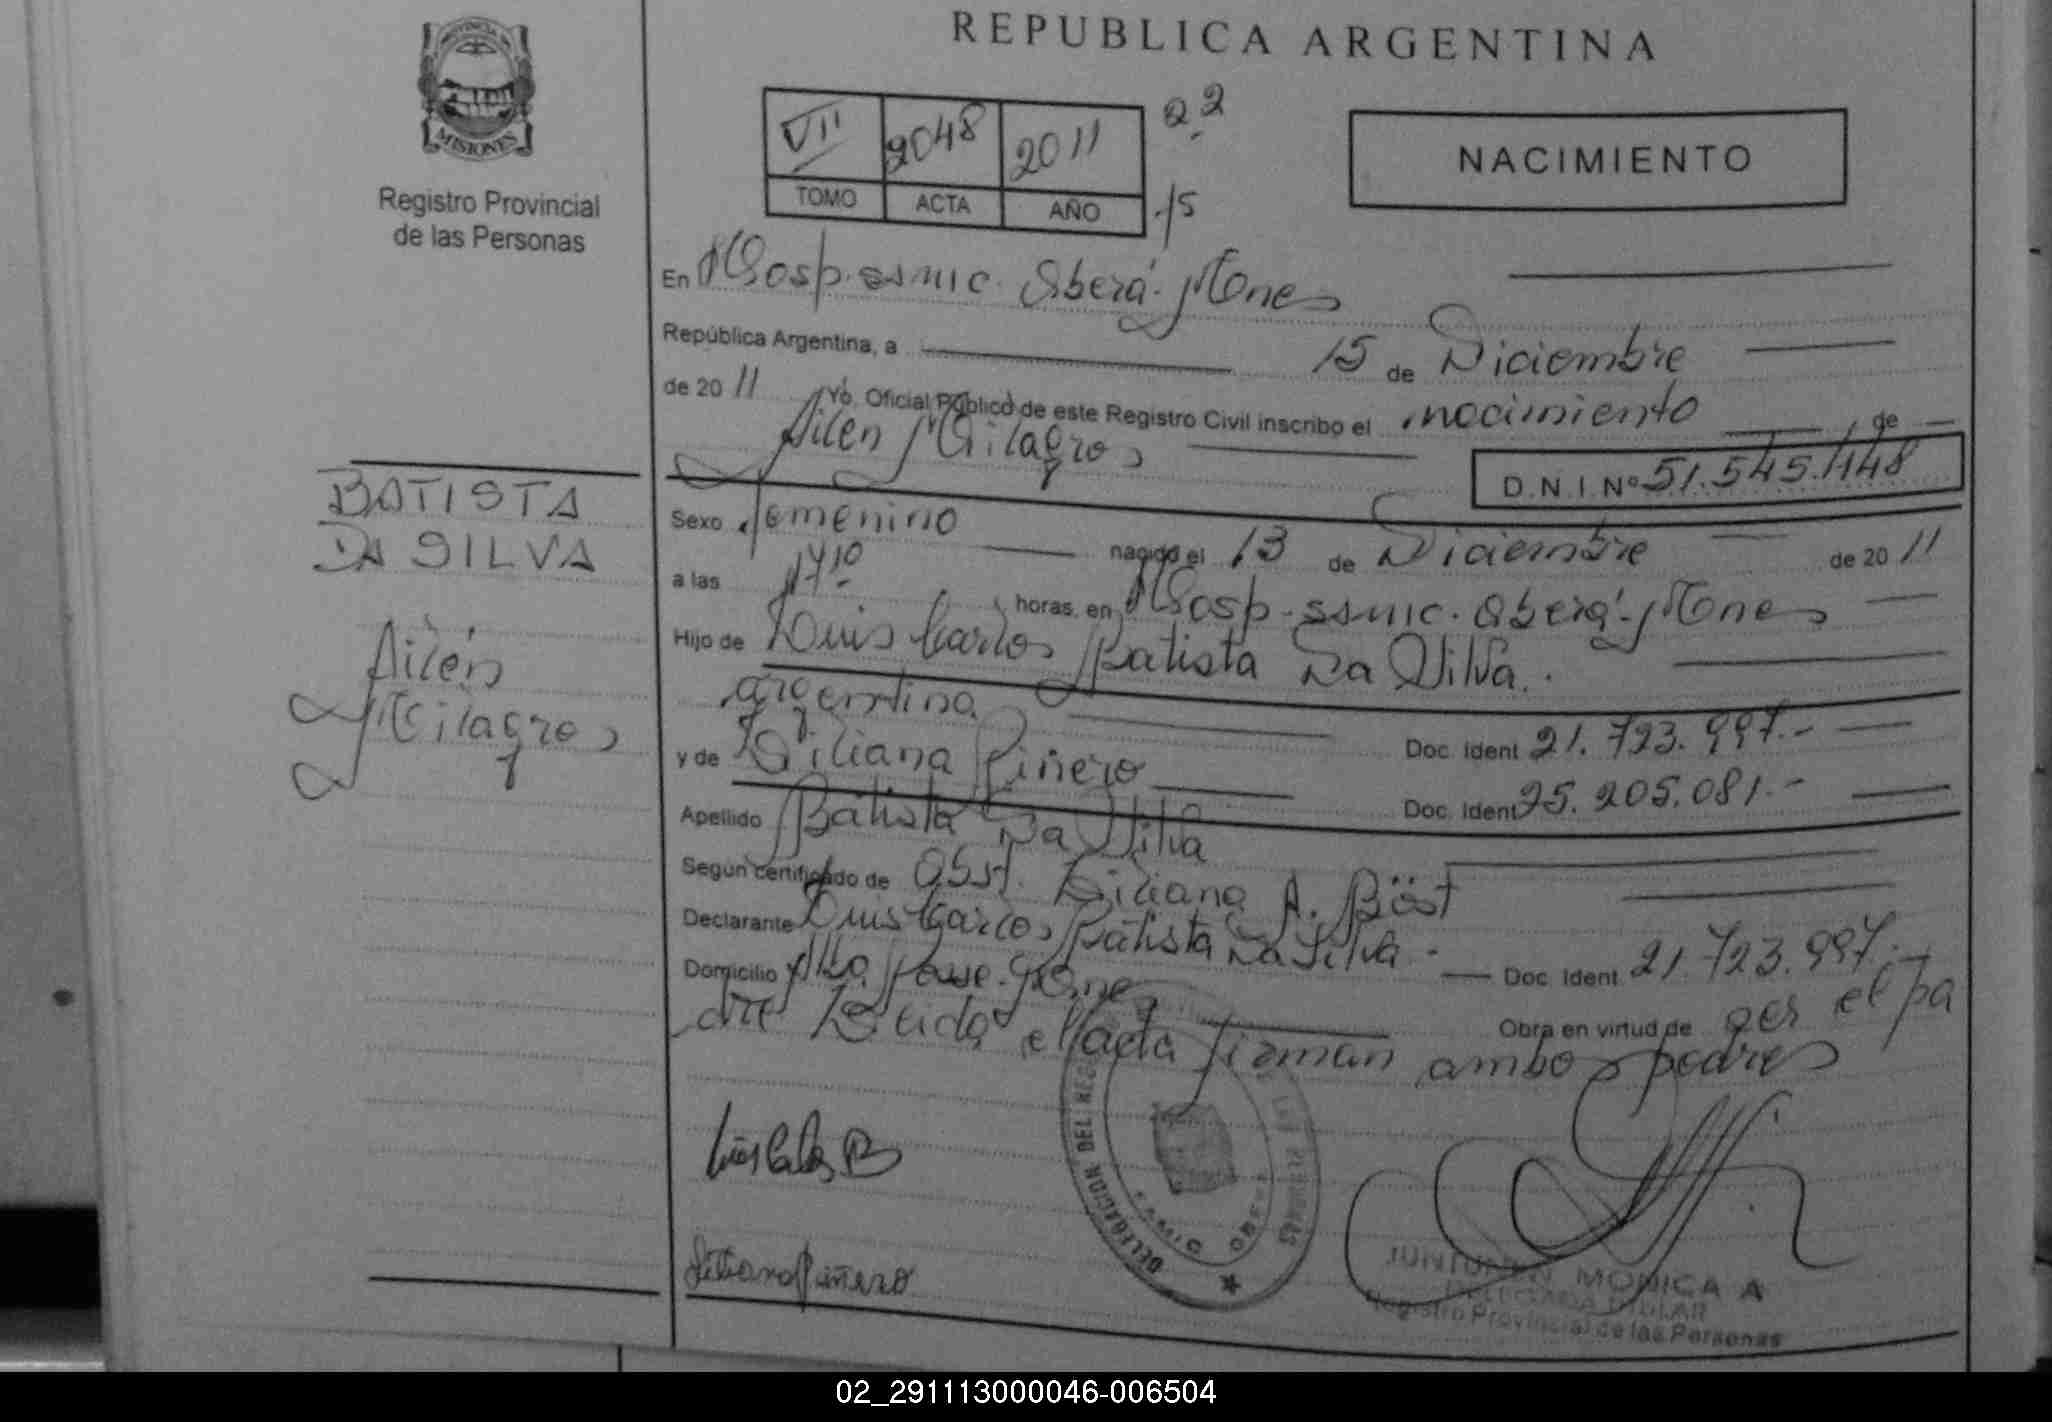 REPUBLICA ARGENTINA
PROVINCIA DE
MISIONES
Registro Provincial
de las Personas
VII 2048 2011
TOMO ACTA AÑO
22
15
NACIMIENTO
En Hosp. ssmic. Oberá. Mnes
República Argentina, a 15 de Diciembre
de 20 11 Yo, Oficial Público de este Registro Civil inscribo el nacimiento de
Ailén Milagros
D.N.I. Nº 51.545.148
BATISTA
DA SILVA
Ailén
Milagros
Sexo femenino nacido el 13 de Diciembre de 20 11
a las 17 10 horas, en Hosp. ssmic. Oberá. Mnes
Hijo de Luis Carlos Batista Da Silva.
argentino Doc. Ident 21.723.997.-
y de Liliana Piñero Doc. Ident 25.205.081.-
Apellido Batista Da Silva
Según certificado de Obst. Liliana A. Böst
Declarante Luis Carlos Batista Da Silva - Doc. Ident. 21.723.997.-
Domicilio Alba Posse. Mnes Obra en virtud de ser el pa
dre Leida el acta firman ambos padres
Luis Carlos B
Liliana Piñero
DELEGACION DEL REG LAS PERSONAS
OBERA
MONICA A
DELEGADA TITULAR
Registro Provincial de las Personas
02_291113000046-006504